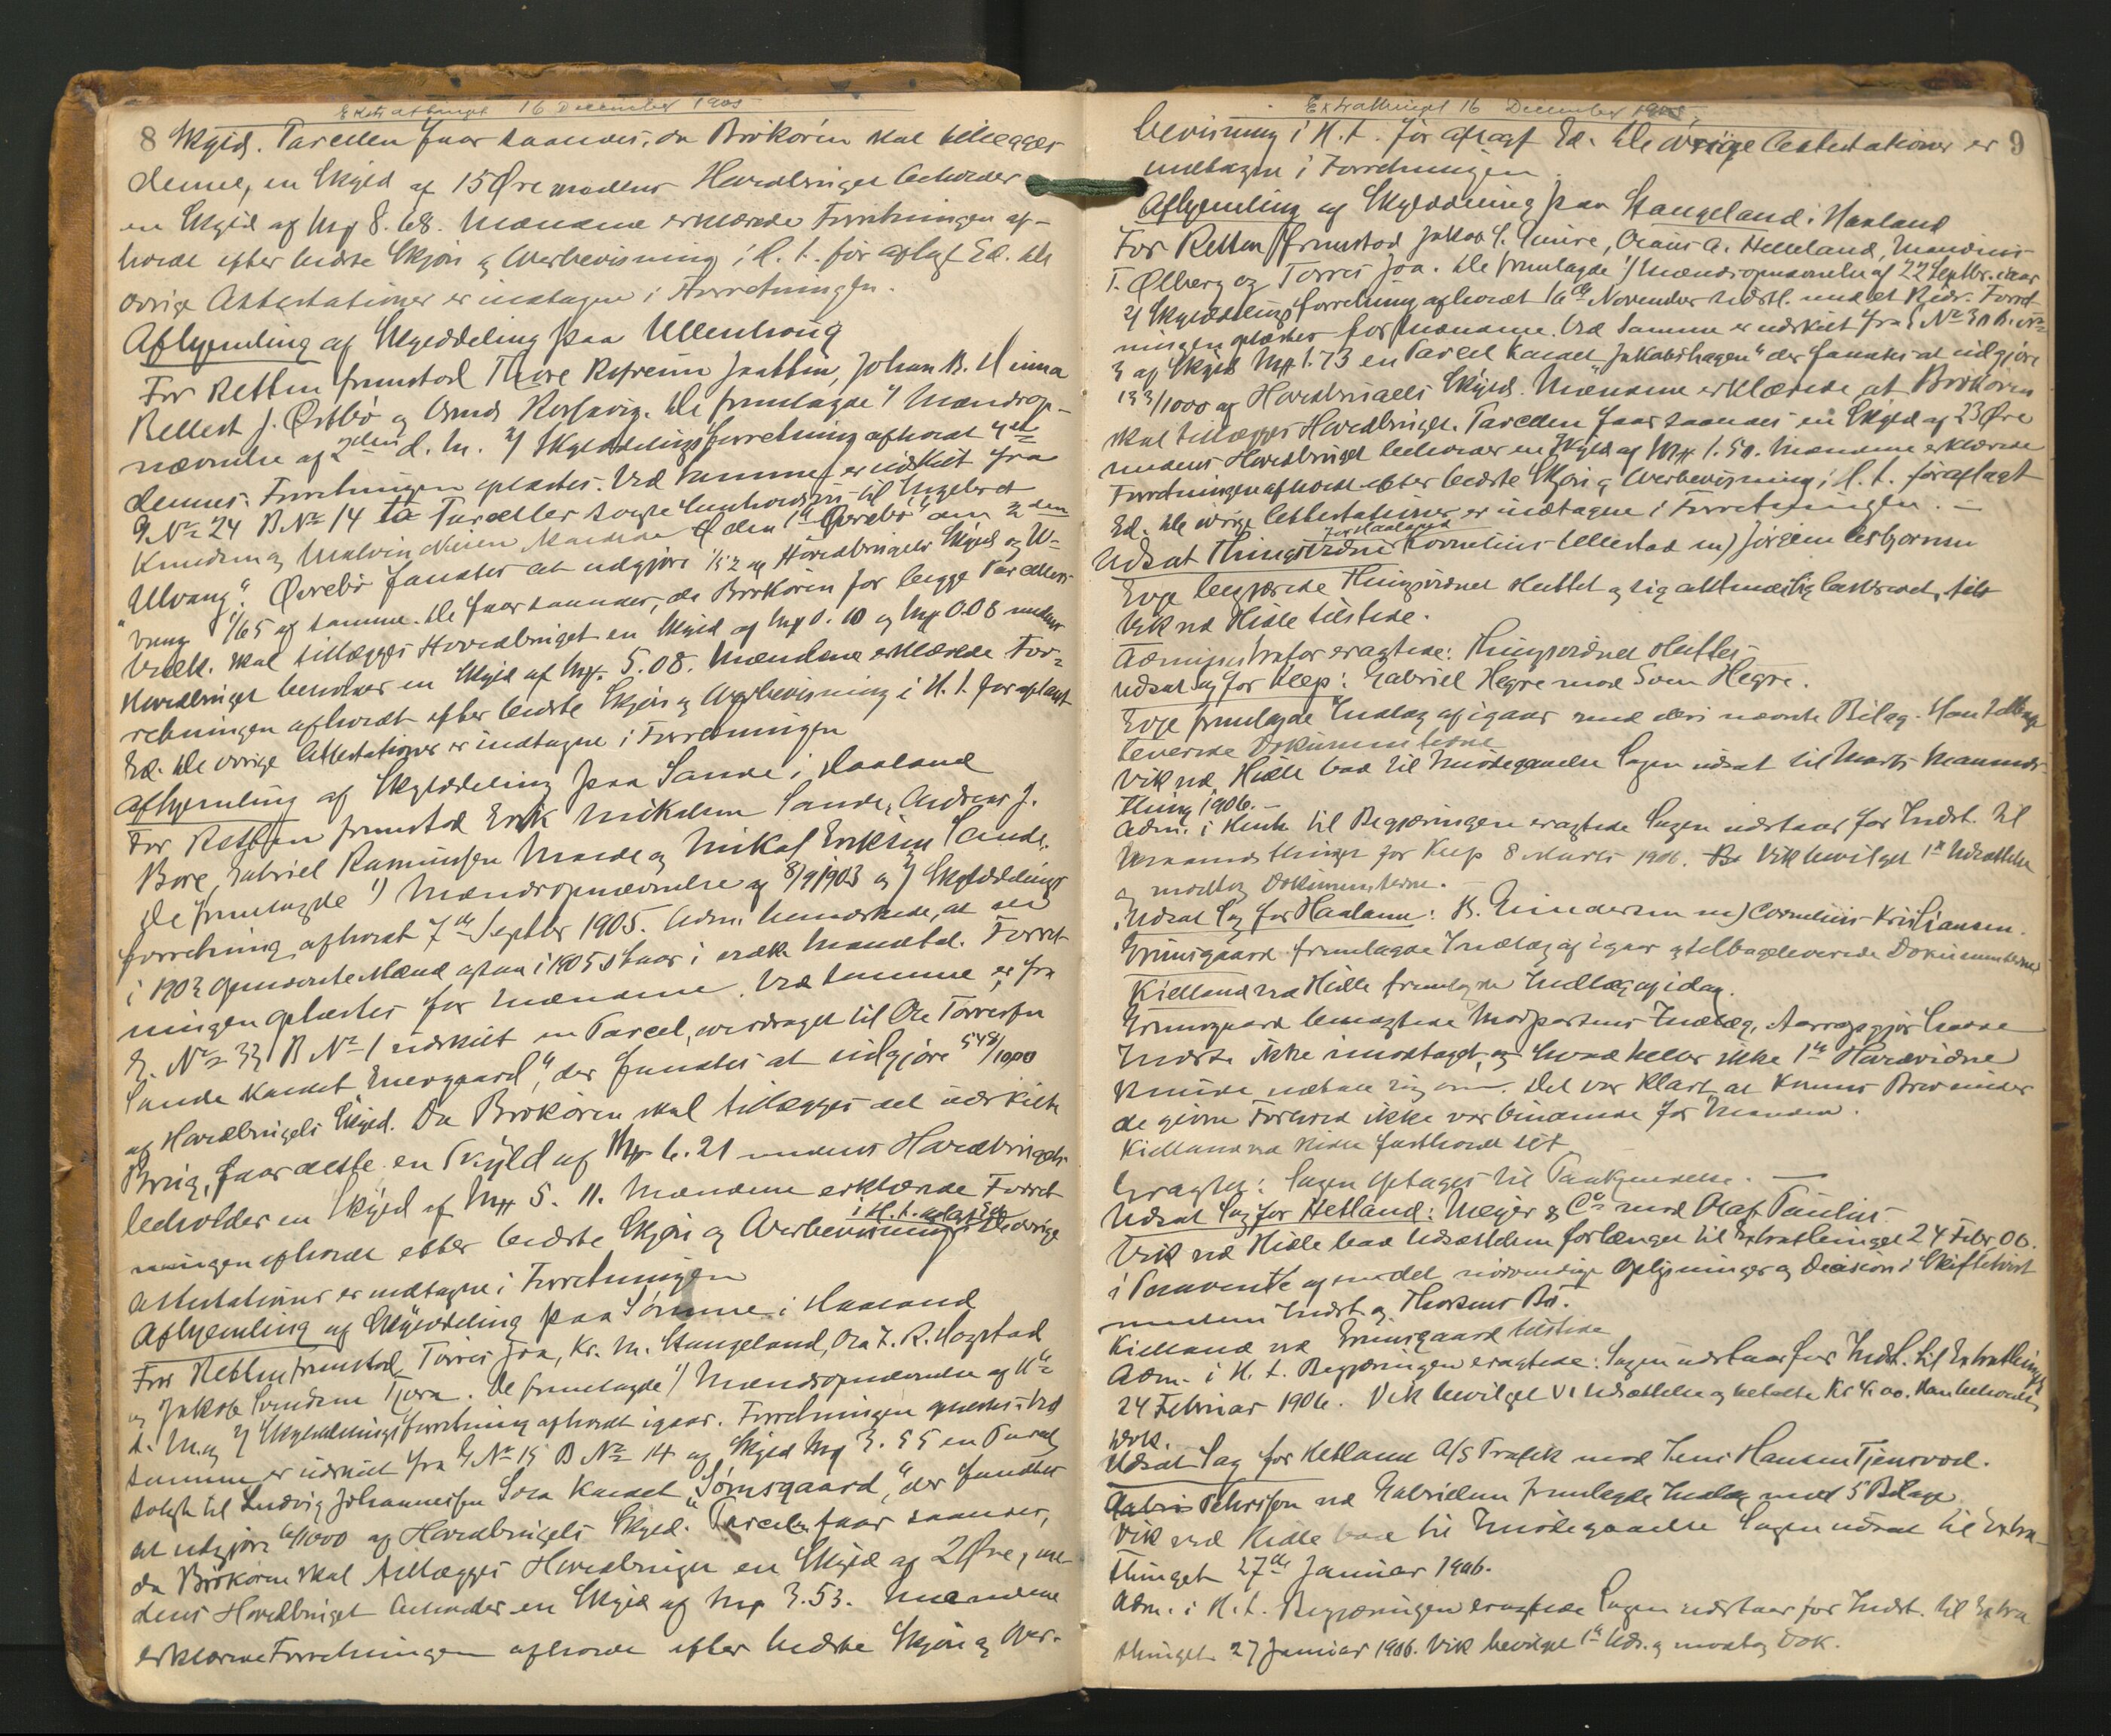 Extrathinget 16 December 1905
8 Skyld. Parcellen faar saaledes, da Brøkøren skal tillægges
denne, en Skyld af 15 Øre medens Hovedbruget beholder
en Skyld af Mrk 8.68. Mændene erklærede Forretningen af-
holdt efter bedste Skjøn og Overbevisning i H. t. før aflagt Ed. De
øvrige Attestationer er indtagne i Forretningen.
Afhjemling af Skylddeling paa Ullenhoug
For Retten fremstod Thore Jaatten, Johan B. Hinna
Bellest J. Østbø og De fremlagde 1/ Mandsop-
nævnelse af 2den d. M. 2/ Skylddelingsforretning afholdt 4de
dennes. Forretningen oplæstes. Ved samme er udskilt fra
G No 24 B No 14 to Parceller solgte henholdsvis til Engebret
Knudsen og Malvin Nilsen kaldede den 1ste "Øvrebø" den 2den
"Ulvang". Øvrebø fandtes at udgjøre 1/52 af Hovedbrugets Skyld og Ul-
vang 1/65 af samme. De faar saaledes, da Brøkøren for begge Parcellers
Vedk. skal tillægges Hovedbruget en Skyld af Mrk 0.10 og Mrk 0.08 medens
Hovedbruget beholder en Skyld af Mrk. 5.08. Mændene erklærede For-
retningen afholdt efter bedste Skjøn og Overbevisning i H. t. før aflagt
Ed. De øvrige Attestationer er indtagne i Forretningen
Afhjemling af Skylddeling paa Sande i Haaland
For Retten fremstod Erik Mikalsen Sande, Andreas J.
Bore, Gabriel Rasmussen Melde og Mikal Eriksen Sande.
De fremlagde 1/ Mandsopnævnelse af 8/9 1903 og 2/ Skylddelings
forretning afholdt 7de Septbr 1905. Adm. bemærkede, at de
i 1903 opnævnte Mænd ogsaa i 1905 staar i Mandtal. Forret-
ningen oplæstes for Mændene. Ved samme er fra
G. No 33 B No 1 udskilt en Parcel, overdraget til Ole Torresen
Sande kaldet "Energaard", der fandtes at udgjøre 548/1000
af Hovedbrugets Skyld. Da Brøkøren skal tillægges det udskilte
Brug, faar dette en Skyld af Mrk 6.21 medens Hovedbruget
beholder en Skyld af Mrk 5.11. Mændene erklærede Forret-
ningen afholdt efter bedste Skjøn og Overbevisning i H. t. aflagt Ed. De øvrige
Attestationer er indtagne i Forretningen
Afhjemling af Skylddeling paa Sømme i Haaland
For Retten fremstod Torres Joa, Kr. M. Stangeland, Ola T. R. Hogstad
og Jakob Svendsen Tjora. De fremlagde 1/ Mandsopnævnelse af 11te
d. M. og 2/ Skylddelingsforretning afholdt igaar. Forretningen oplæstes. Ved
samme er udskilt fra G No 15 B No 14 af Skyld Mrk 3.55 en Parcel,
solgt til Ludvig Johannessen Sola kaldet "Sømsgaard", der fandtes
at udgjøre 6/1000 af Hovedbrugets Skyld. Parcelen faar saaledes,
da Brøkøren skal tillægges Hovedbruget en Skyld af 2 Øre, me-
dens Hovedbruget beholder en Skyld af Mrk 3.53. Mændene
erklærede Forretningen afholdt efter bedste Skjøn og Over-
Extrathinget 16 December 1905
9
bevisning i H. t. før aflagt Ed. De øvrige Attestationer er
indtagne i Forretningen.
Afhjemling af Skylddeling paa Stangeland i Haaland
For Retten fremstod Jakob S. Helleland,
T. Ølberg og Torres Joa. De fremlagde 1/ Mandsopnævnelse af 22 Septbr. d. Aar
2/ Skylddelingsforretning afholdt 16de November sidstl. med et Rids. Forret-
ningen oplæstes for Mændene. Ved samme er udskilt fra G No 3 B. No
3 af Skyld Mrk 1.73 en Parcel kaldet "Jakobshagen" der fandtes at udgjøre
133/1000 af Hovedbrugets Skyld. Mændene erklærede at Brøkøren
skal tillægges Hovedbruget. Parcellen faar saaledes en Skyld af 23 Øre
medens Hovedbruget beholder en Skyld af Mrk 1.50. Mændene erklærede
Forretningen afholdt efter bedste Skjøn og Overbevisning i H. t. før aflagt
Ed. De øvrige Attestationer er indtagne i Forretningen. –
Udsat Thingsvidne for Haaland Kornelius Ullestad m) Jörgen Asbjørnsen
Evje begjærede Thingsvidnet sluttet og sig
Vik ved Hidle tilstede.
Administrator eragtede: Thingsvidnet sluttes –
Udsat Sag for Klep: Gabriel Hegre mod Sven Hegre.
Evje fremlagde Indlæg af igaar med deri nævnte Bilag. Han tilbage
leverede Dokumenterne
Vik ved Hidle bad til Imødegaaelse Sagen udsat til Marts Maaneds-
thing 1906. –
Adm. i Henh. til Begjæringen eragtede Sagen udstaar for Indst. til
Maanedsthinget for Klep 8 Marts 1906. Vik bevilget 1ste Udsættelse
og modtog Dokumenterne.
Udsat Sag for Haaland: B. Gundersen m) Cornelius Kristiansen.
Grimsgaard fremlagde Indlæg af igaar og tilbageleverede Dokumenterne
Kielland ved Hidle fremlagde Indlæg af idag.
Grimsgaard benægtede Modpartens Indlæg,
Indst. ikke modtaget, og hvad heller ikke 1ste Hovedvidne
kunde udtale sig om. Det var klart at Konens Brev under
de givne Forhold ikke var bindende for Manden.
Kielland ved Hidle fastholdt sit
Eragtet: Sagen optages til Paakjendelse. –
Udsat Sag for Hetland: Meyer & Co mod Olaf Paulus
Vik ved Hidle bad Udsættelsen forlænget til Extrathinget 24 Febr 06.
i Paavente af endel nødvendige Oplysninger og Decision i Skifteret
mellem Indst. og Thorsens Bo.
Kielland ved Grimsgaard tilstede
Adm. i H. t. Begjæringen eragtede: Sagen udstaar for Indst. til Extrathinget
24 Februar 1906. Vik bevilget VI Udsættelse og betalte Kr 4.00. Han beholdt
Dok.
Udsat Sag for Hetland A/S Trafik mod Jens Hansen Tjensvold.
ved Gabrielsen fremlagde Indlæg med 5 Bilage
Vik ved Hidle bad til Imødegaaelse Sagen udsat til Extra-
thinget 27de Januar 1906.
Adm. i H. t. Begjæringen eragtede Sagen udstaar for Indst. til Extra
thinget 27 Januar 1906. Vik bevilget 1ste Uds. og modtog Dok.